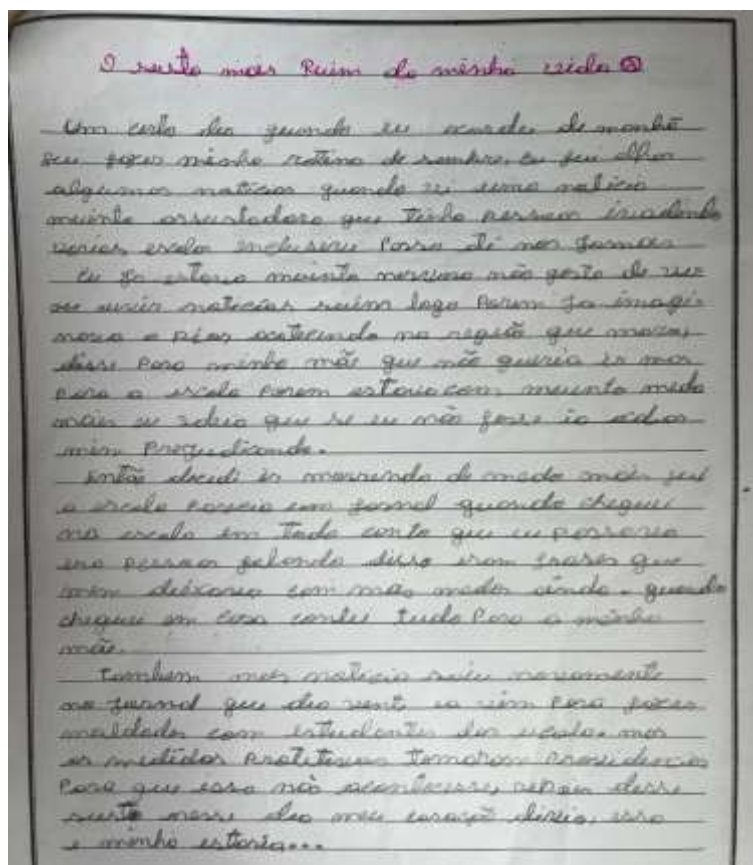 O susto mais Ruim da minha vida
Um certo dia quando eu acordei de manhã
fui fazer minha rotina de sempre, eu fui olhar
algumas noticias quando vi uma noticia
muinto assustadora que tinha pessoas invadindo
varias escolas inclusive Passa até nos Jornais
eu ja estava muinto nervosa não gosto de
noticias ruim logo Porem ja imagi-
nava o pior acontecendo na região que morava,
disse Para minha mãe que não queria ir mas
para a escola Porem estava com muinto medo
mais eu sabia que se eu não fosse ia
mim Prejudicando.
Então decidi ir morrendo de medo mais fui
a escola Parecia um jornal quando cheguei
na escola em Todo canto que eu passava
era pessoas falando disso eram frases que
mim deixava com mais medos ainda. quando
cheguei em casa contei tudo Para a minha
mãe.
Tambem mais noticia saiu novamente
no jornal que dia vent ia vim Para fazer
maldades com estudantes das escolas. mas
as medidas Protetivas tomaram Providencias
Para que isso não acontecesse, depois desse
susto nesse dia meu coração dizia, essa
é minha estoria...